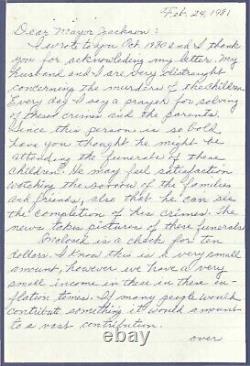 Feb. 24, 1981
Dear Mayor Jackson:
I wrote to you Oct. 1980 and I thank
you for acknowledging my letter. My
husband and I are very distraught
concerning the murders of the children.
Every day I say a prayer for solving
of these crimes and the parents.
Since this person is so bold
have you thought he might be
attending the funerals of these
children. He may feel satisfaction
watching the sorrow of the families
and friends, also that he can see
the completion of his crimes. The
news takes pictures of these funerals.
Enclosed is a check for ten
dollars. I know this is a very small
amount, however we have a very
small income in these in these in-
flation times. If many people would
contribute something it would amount
to a vast contribution.
over
© eb-yst.com